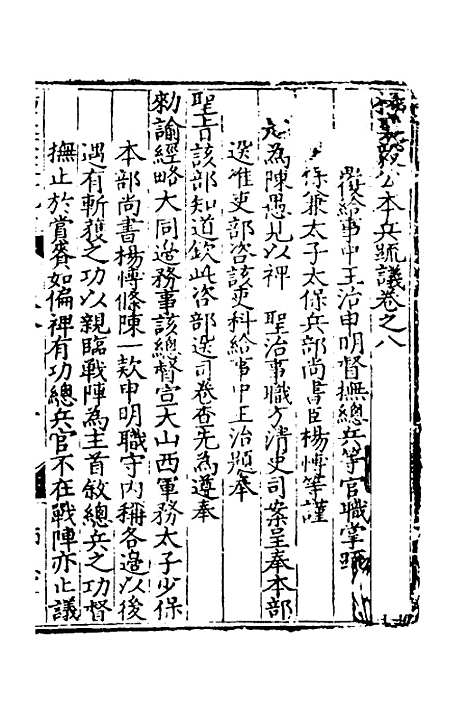 楊襄毅公本兵疏議卷之八
覆給事中王治申明督撫總兵等官職掌疏
少保兼太子太保兵部尚書臣楊博等謹
題為陳愚見以裨 聖治事職方清吏司案呈奉本部
送准吏部咨該吏科給事中王治題奉
聖旨該部知道欽此咨部送司卷查先為遵奉
勑諭經略大同邊務事該總督宣大山西軍務太子少保
本部尚書楊博條陳一款申明職守內稱各邊以後
遇有斬獲之功以親臨戰陣為主首敘總兵之功督
撫止於賞賚如偏裨有功總兵官不在戰陣亦止議